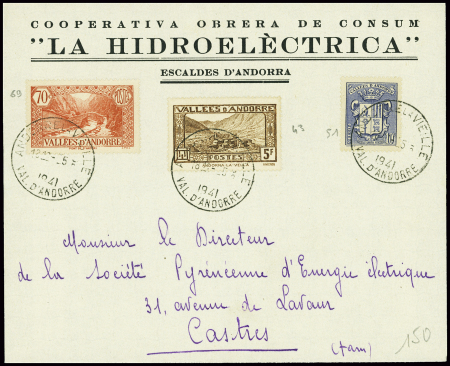 COOPERATIVA OBRERA DE CONSUM
"LA HIDROELÈCTRICA"
ESCALDES D'ANDORRA
69
70c POSTE
VALLÉES D'ANDORRE
VALLÉES D'ANDORRE
POSTES 5F
ANDORRA LA VELLA
43
51
1941
VAL. D'ANDORRE
1941
VAL. D'ANDORRE
1941
VAL. D'ANDORRE
Monsieur le Directeur
de la Société Pyrénéenne d'Energie électrique
31, avenue de Lavaur
Castres
(Tarn)
150